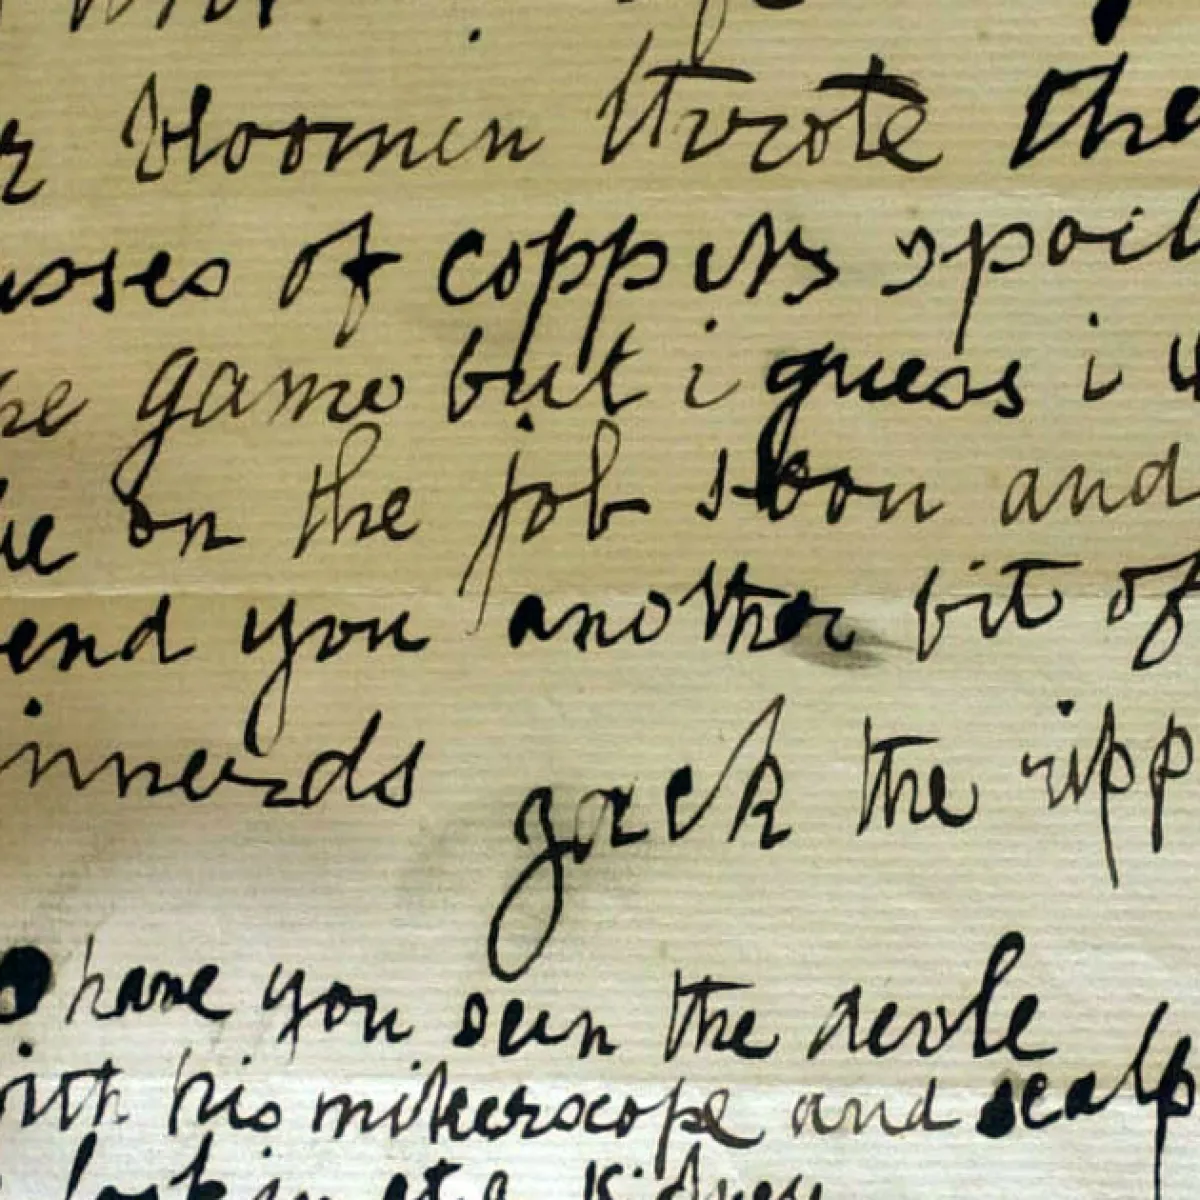 r bloomin throte the
usses of coppers spoil
he game but i guess i w
be on the job soon and
end you another bit of
innerds
Jack the ripp
O have you seen the devle
with his mikerscope and scalp
a lookin at a Kidney